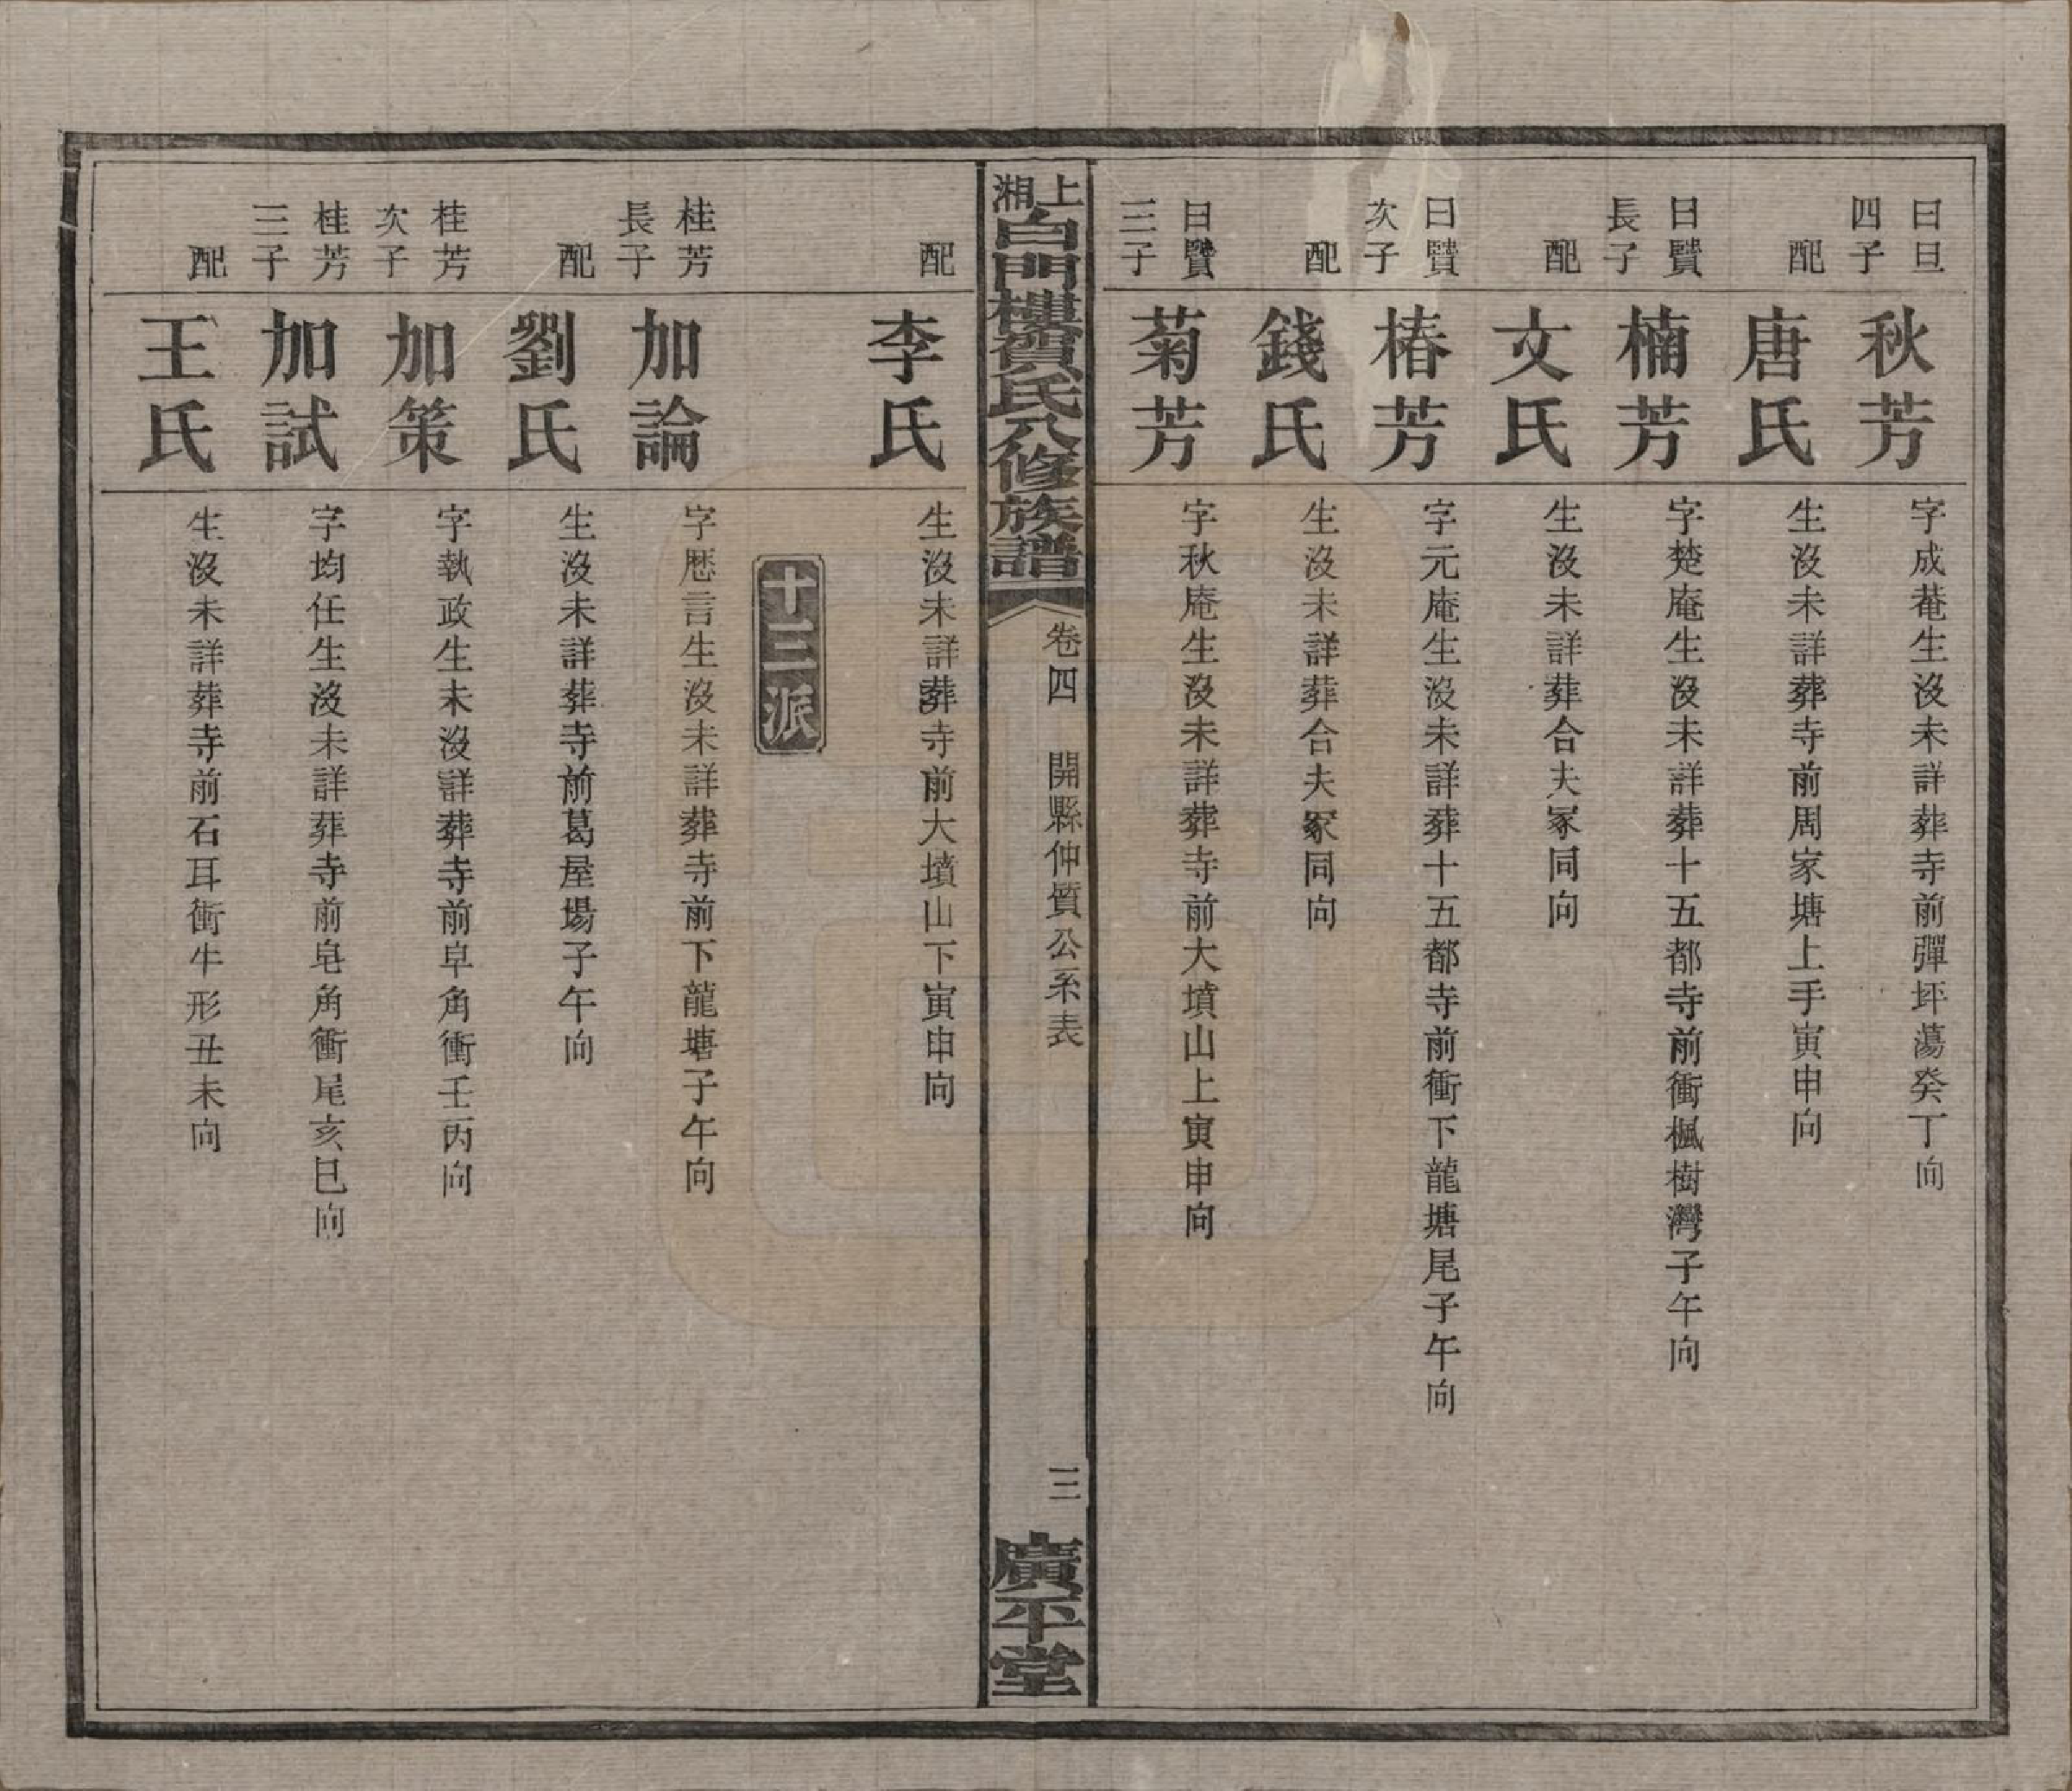 曰旦四子
秋芳
字成菴生沒未詳葬寺前彈坪蕩癸丁向
配
唐氏
生沒未詳葬寺前周家塘上手寅申向
曰贒長子
楠芳
字楚庵生沒未詳葬十五都寺前衝楓樹灣子午向
配
文氏
生沒未詳葬合夫冢同向
曰贒次子
椿芳
字元庵生沒未詳葬十五都寺前衝下龍塘尾子午向
配
錢氏
生沒未詳葬合夫冢同向
曰贒三子
菊芳
字秋庵生沒未詳葬寺前大墳山上寅申向
上湘白門樓賀氏八修族譜
卷四 開縣仲質公系表
三
廣平堂
配
李氏
生沒未詳葬寺前大墳山下寅申向
十三派
桂芳長子
加論
字歷言生沒未詳葬寺前下龍塘子午向
配
劉氏
生沒未詳葬寺前葛屋場子午向
桂芳次子
加策
字執政生未沒詳葬寺前皁角衝壬丙向
桂芳三子
加試
字均任生沒未詳葬寺前皂角衝尾亥巳向
配
王氏
生沒未詳葬寺前石耳衝牛形丑未向